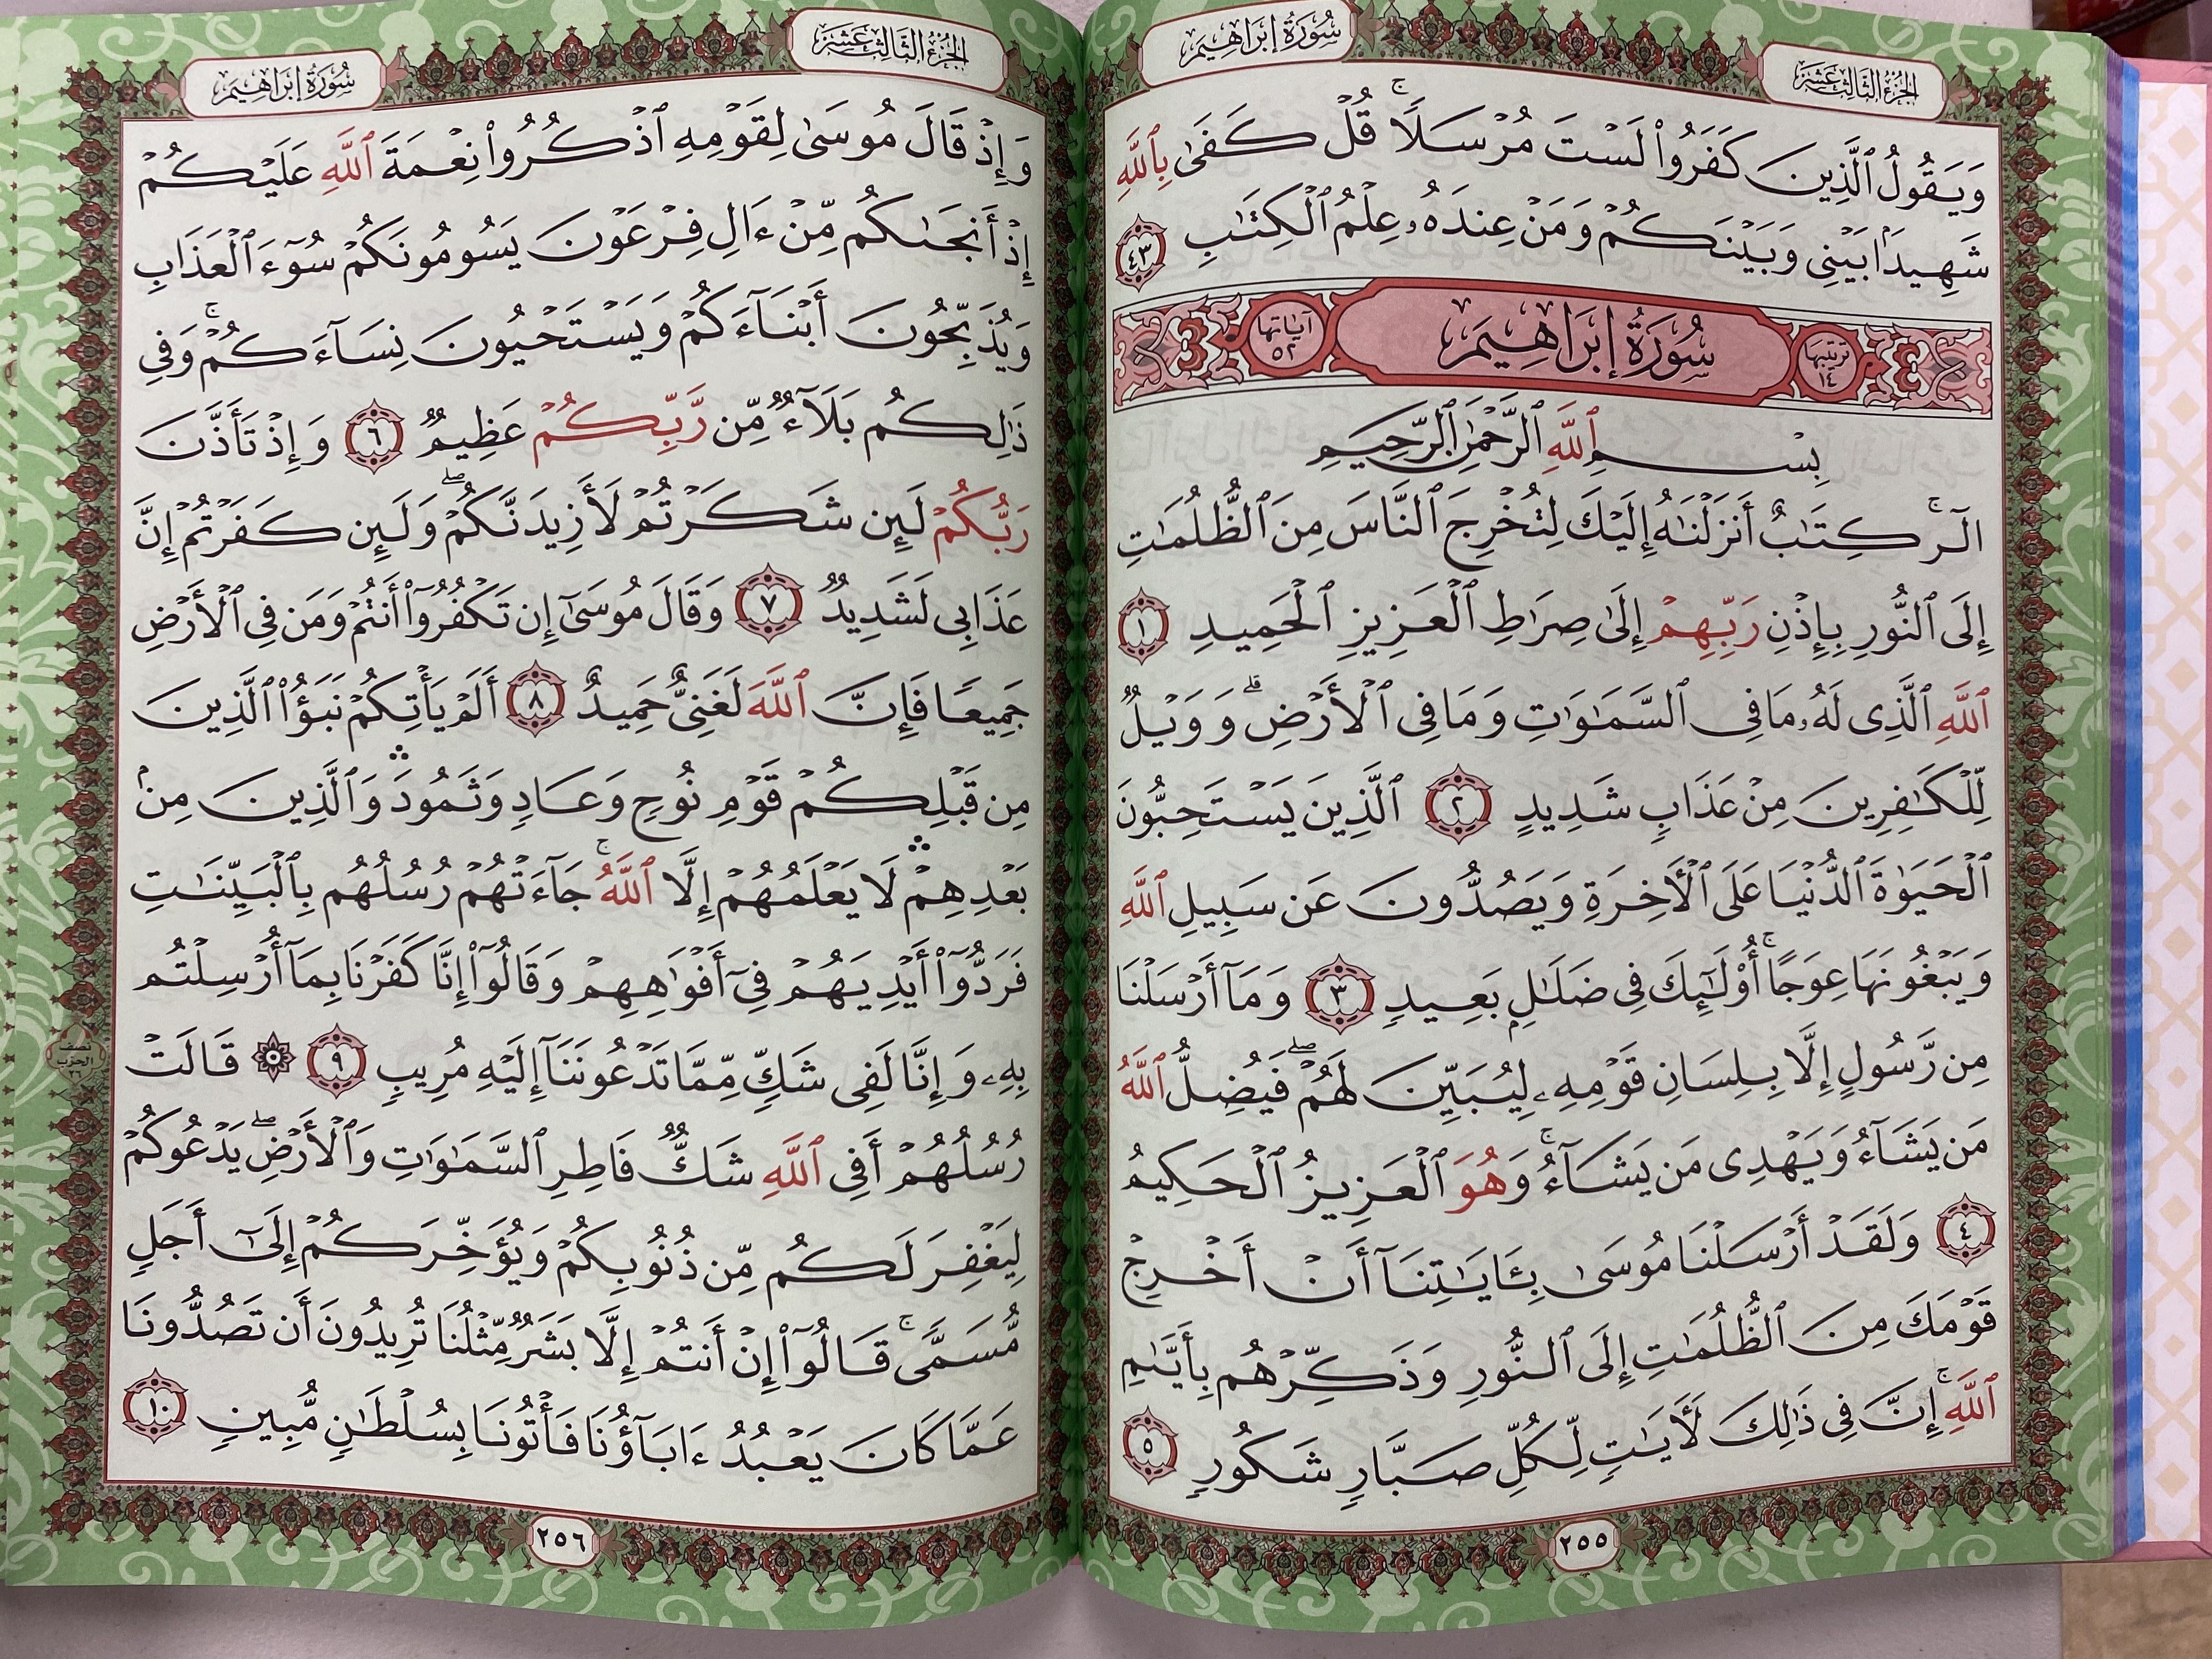 الجزء الثالث عشر
سورة إبراهيم
وَيَقُولُ ٱلَّذِينَ كَفَرُوا۟ لَسْتَ مُرْسَلًا ۚ قُلْ كَفَىٰ بِٱللَّهِ
شَهِيدًۢا بَيْنِى وَبَيْنَكُمْ وَمَنْ عِندَهُۥ عِلْمُ ٱلْكِتَٰبِ ٤٣
ترتيبها ١٤ سُورَةُ إِبْرَاهِيمَ آياتها ٥٢
بِسْمِ ٱللَّهِ ٱلرَّحْمَٰنِ ٱلرَّحِيمِ
الٓر ۚ كِتَٰبٌ أَنزَلْنَٰهُ إِلَيْكَ لِتُخْرِجَ ٱلنَّاسَ مِنَ ٱلظُّلُمَٰتِ
إِلَى ٱلنُّورِ بِإِذْنِ رَبِّهِمْ إِلَىٰ صِرَٰطِ ٱلْعَزِيزِ ٱلْحَمِيدِ ١
ٱللَّهِ ٱلَّذِى لَهُۥ مَا فِى ٱلسَّمَٰوَٰتِ وَمَا فِى ٱلْأَرْضِ ۗ وَوَيْلٌ
لِّلْكَٰفِرِينَ مِنْ عَذَابٍ شَدِيدٍ ٢ ٱلَّذِينَ يَسْتَحِبُّونَ
ٱلْحَيَوٰةَ ٱلدُّنْيَا عَلَى ٱلْأَخِرَةِ وَيَصُدُّونَ عَن سَبِيلِ ٱللَّهِ
وَيَبْغُونَهَا عِوَجًا ۚ أُو۟لَٰٓئِكَ فِى ضَلَٰلٍۭ بَعِيدٍ ٣ وَمَآ أَرْسَلْنَا
مِن رَّسُولٍ إِلَّا بِلِسَانِ قَوْمِهِۦ لِيُبَيِّنَ لَهُمْ ۖ فَيُضِلُّ ٱللَّهُ
مَن يَشَآءُ وَيَهْدِى مَن يَشَآءُ ۚ وَهُوَ ٱلْعَزِيزُ ٱلْحَكِيمُ
٤ وَلَقَدْ أَرْسَلْنَا مُوسَىٰ بِـَٔايَٰتِنَآ أَنْ أَخْرِجْ
قَوْمَكَ مِنَ ٱلظُّلُمَٰتِ إِلَى ٱلنُّورِ وَذَكِّرْهُم بِأَيَّىٰمِ
ٱللَّهِ ۚ إِنَّ فِى ذَٰلِكَ لَأٓيَٰتٍ لِّكُلِّ صَبَّارٍ شَكُورٍ ٥
٢٥٥
الجزء الثالث عشر
سورة إبراهيم
وَإِذْ قَالَ مُوسَىٰ لِقَوْمِهِ ٱذْكُرُوا۟ نِعْمَةَ ٱللَّهِ عَلَيْكُمْ
إِذْ أَنجَىٰكُم مِّنْ ءَالِ فِرْعَوْنَ يَسُومُونَكُمْ سُوٓءَ ٱلْعَذَابِ
وَيُذَبِّحُونَ أَبْنَآءَكُمْ وَيَسْتَحْيُونَ نِسَآءَكُمْ ۚ وَفِى
ذَٰلِكُم بَلَآءٌ مِّن رَّبِّكُمْ عَظِيمٌ ٦ وَإِذْ تَأَذَّنَ
رَبُّكُمْ لَئِن شَكَرْتُمْ لَأَزِيدَنَّكُمْ ۖ وَلَئِن كَفَرْتُمْ إِنَّ
عَذَابِى لَشَدِيدٌ ٧ وَقَالَ مُوسَىٰٓ إِن تَكْفُرُوٓا۟ أَنتُمْ وَمَن فِى ٱلْأَرْضِ
جَمِيعًا فَإِنَّ ٱللَّهَ لَغَنِىٌّ حَمِيدٌ ٨ أَلَمْ يَأْتِكُمْ نَبَؤُا۟ ٱلَّذِينَ
مِن قَبْلِكُمْ قَوْمِ نُوحٍ وَعَادٍ وَثَمُودَ ۛ وَٱلَّذِينَ مِنۢ
بَعْدِهِمْ ۛ لَا يَعْلَمُهُمْ إِلَّا ٱللَّهُ ۚ جَآءَتْهُمْ رُسُلُهُم بِٱلْبَيِّنَٰتِ
فَرَدُّوٓا۟ أَيْدِيَهُمْ فِىٓ أَفْوَٰهِهِمْ وَقَالُوٓا۟ إِنَّا كَفَرْنَا بِمَآ أُرْسِلْتُم
بِهِۦ وَإِنَّا لَفِى شَكٍّ مِّمَّا تَدْعُونَنَآ إِلَيْهِ مُرِيبٍ ٩ ۞ قَالَتْ
رُسُلُهُمْ أَفِى ٱللَّهِ شَكٌّ فَاطِرِ ٱلسَّمَٰوَٰتِ وَٱلْأَرْضِ ۖ يَدْعُوكُمْ
لِيَغْفِرَ لَكُم مِّن ذُنُوبِكُمْ وَيُؤَخِّرَكُمْ إِلَىٰٓ أَجَلٍ
مُّسَمًّى ۚ قَالُوٓا۟ إِنْ أَنتُمْ إِلَّا بَشَرٌ مِّثْلُنَا تُرِيدُونَ أَن تَصُدُّونَا
عَمَّا كَانَ يَعْبُدُ ءَابَآؤُنَا فَأْتُونَا بِسُلْطَٰنٍ مُّبِينٍ ١٠
نصف
الحزب
٢٦
٢٥٦